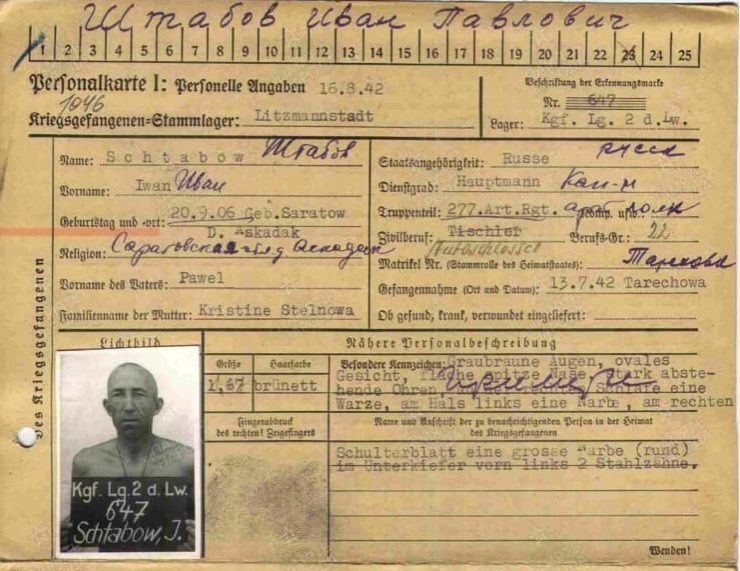 Штабов Иван Павлович
1 2 3 4 5 6 7 8 9 10 11 12 13 14 15 16 17 18 19 20 21 22 23 24 25
Personalkarte I: Personelle Angaben 16.8.42
1046
Kriegsgefangenen-Stammlager: Litzmannstadt
Beschriftung der Erkennungsmarke
Nr. 647
Lager: Kgf. Lg. 2 d.Lw.
Des Kriegsgefangenen
Name: Schtabow Штабов
Vorname: Iwan Иван
Geburtstag und -ort: 20.9.06 Geb.Saratow
D. Askadak
Religion: Саратовская
Vorname des Vaters: Pawel
Familienname der Mutter: Kristine Stelnowa
Staatsangehörigkeit: Russe русск
Dienstgrad: Hauptmann Кап-н
Truppenteil: 277.Art.Rgt. Komp. usw.: полк
Zivilberuf: Tischler Berufs-Gr.: 22
Autoschlosser
Matrikel Nr. (Stammrolle des Heimatstaates):
Gefangennahme (Ort und Datum): 13.7.42 Tarechowa
Ob gesund, krank, verwundet eingeliefert:
Lichtbild
Nähere Personalbeschreibung
Größe Haarfarbe
1,67 brünett
Besondere Kennzeichen: Graubraune Augen, ovales
Gesicht, flache spitze Nase, stark abste-
hende Ohren, Schläfe eine
Warze, am Hals links eine Narbe, am rechten
Fingerabdruck
des rechten! Zeigefingers
Name und Anschrift der zu benachrichtigenden Person in der Heimat
des Kriegsgefangenen
Schulterblatt eine grosse Narbe (rund)
im Unterkiefer vorn links 2 Stahlzähne.
Kgf. Lg. 2 d. Lw.
647
Schtabow, J.
Wenden!